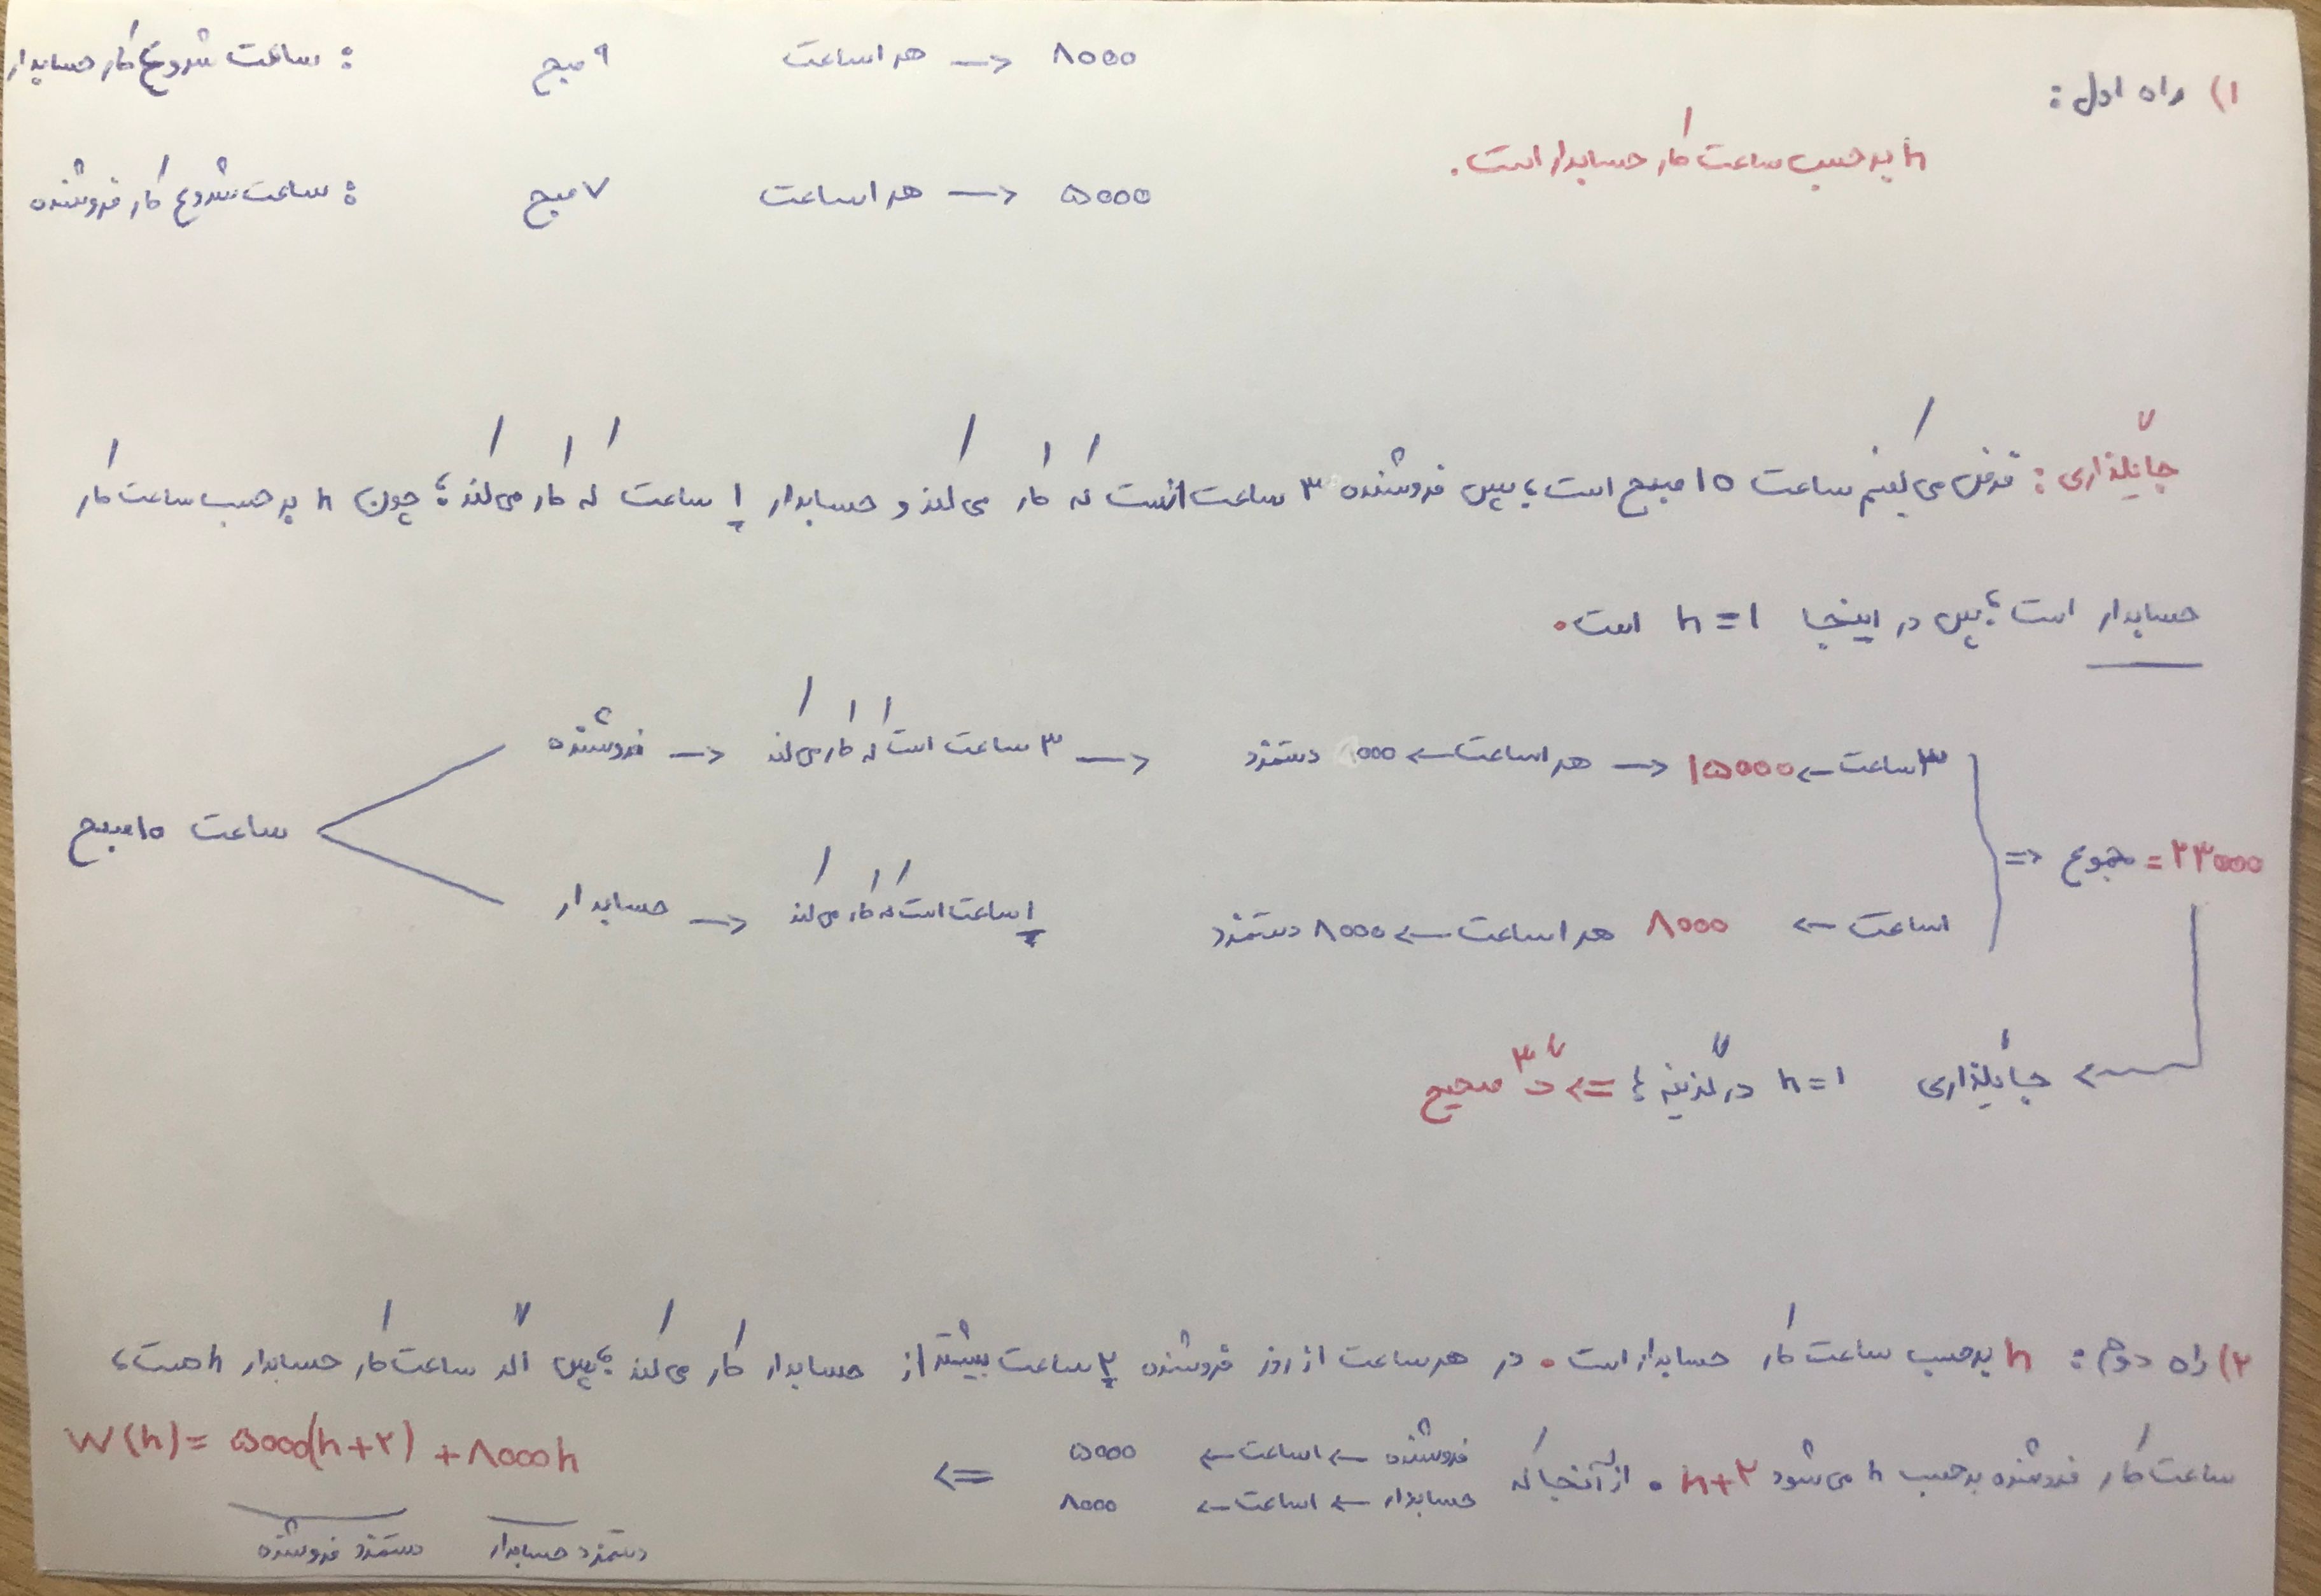 ۱) راه اول:
ساعت شروع کار حسابدار: ۹ صبح هر ۱ ساعت -> ۸۰۰۰
h برحسب ساعت کار حسابدار است.
ساعت شروع کار فروشنده: ۷ صبح هر ۱ ساعت -> ۵۰۰۰
جایگذاری: فرض می‌کنیم ساعت ۱۰ صبح است؛ پس فروشنده ۳ ساعت است که کار می‌کند و حسابدار ۱ ساعت که کار می‌کند؛ چون h برحسب ساعت کار
حسابدار است؛ پس در اینجا h=۱ است.
ساعت ۱۰ صبح
فروشنده -> ۳ ساعت است که کار می‌کند -> هر ۱ ساعت -> ۰۰۰ دستمزد -> ۳ ساعت -> ۱۵۰۰۰
حسابدار -> ۱ ساعت است که کار می‌کند هر ۱ ساعت -> ۸۰۰۰ دستمزد ۱ ساعت -> ۸۰۰۰
=> مجموع = ۲۳۰۰۰
-> جایگذاری h=۱ در گزینه‌ها => گ ۳ صحیح
۲) راه دوم: h برحسب ساعت کار حسابدار است. در هر ساعت از روز فروشنده ۲ ساعت بیشتر از حسابدار کار می‌کند؛ پس اگر ساعت کار حسابدار h هست،
ساعت کار فروشنده برحسب h می‌شود h+۲. از آنجا که
فروشنده -> ۱ ساعت -> ۵۰۰۰
حسابدار -> ۱ ساعت -> ۸۰۰۰
=> W(h)= ۵۰۰۰(h+۲) + ۸۰۰۰h
دستمزد فروشنده دستمزد حسابدار